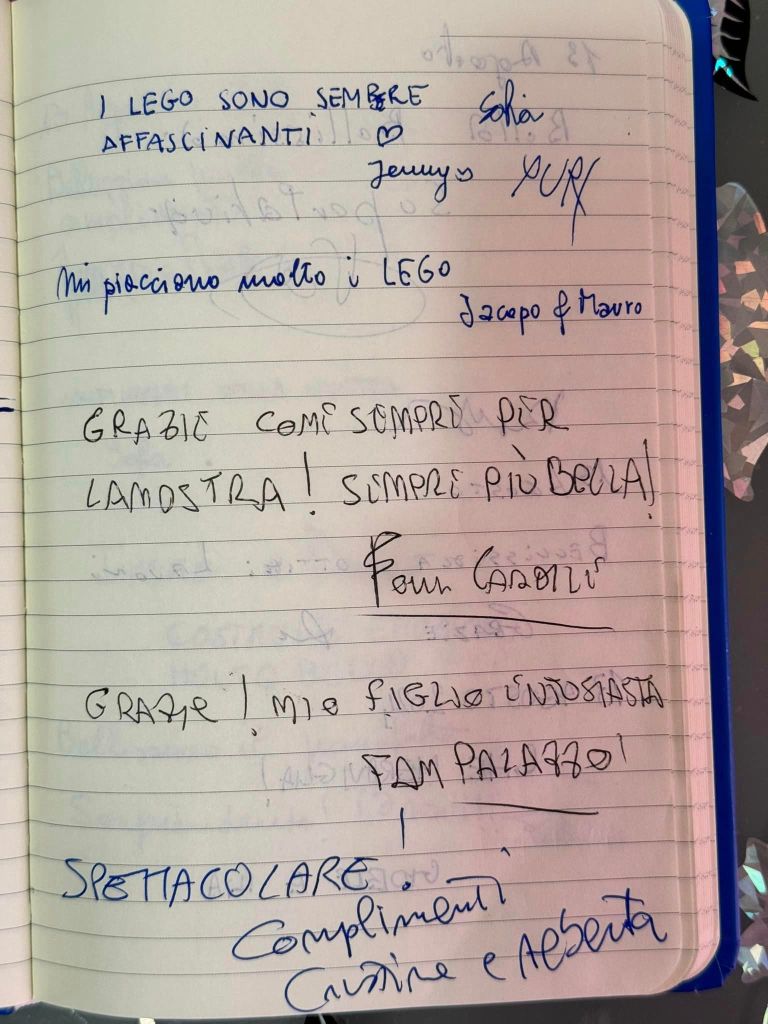 I LEGO SONO SEMPRE
AFFASCINANTI ♡
Sofia
Jenny
YURI
Mi piacciono molto i LEGO
Jacopo & Mauro
GRAZIE COME SEMPRE PER
LA MOSTRA! SEMPRE PIÙ BELLA!
GRAZIE! MIO FIGLIO ENTOSIASTA
FAM PALAZZO!
SPETTACOLARE!
Complimenti
e Alberta